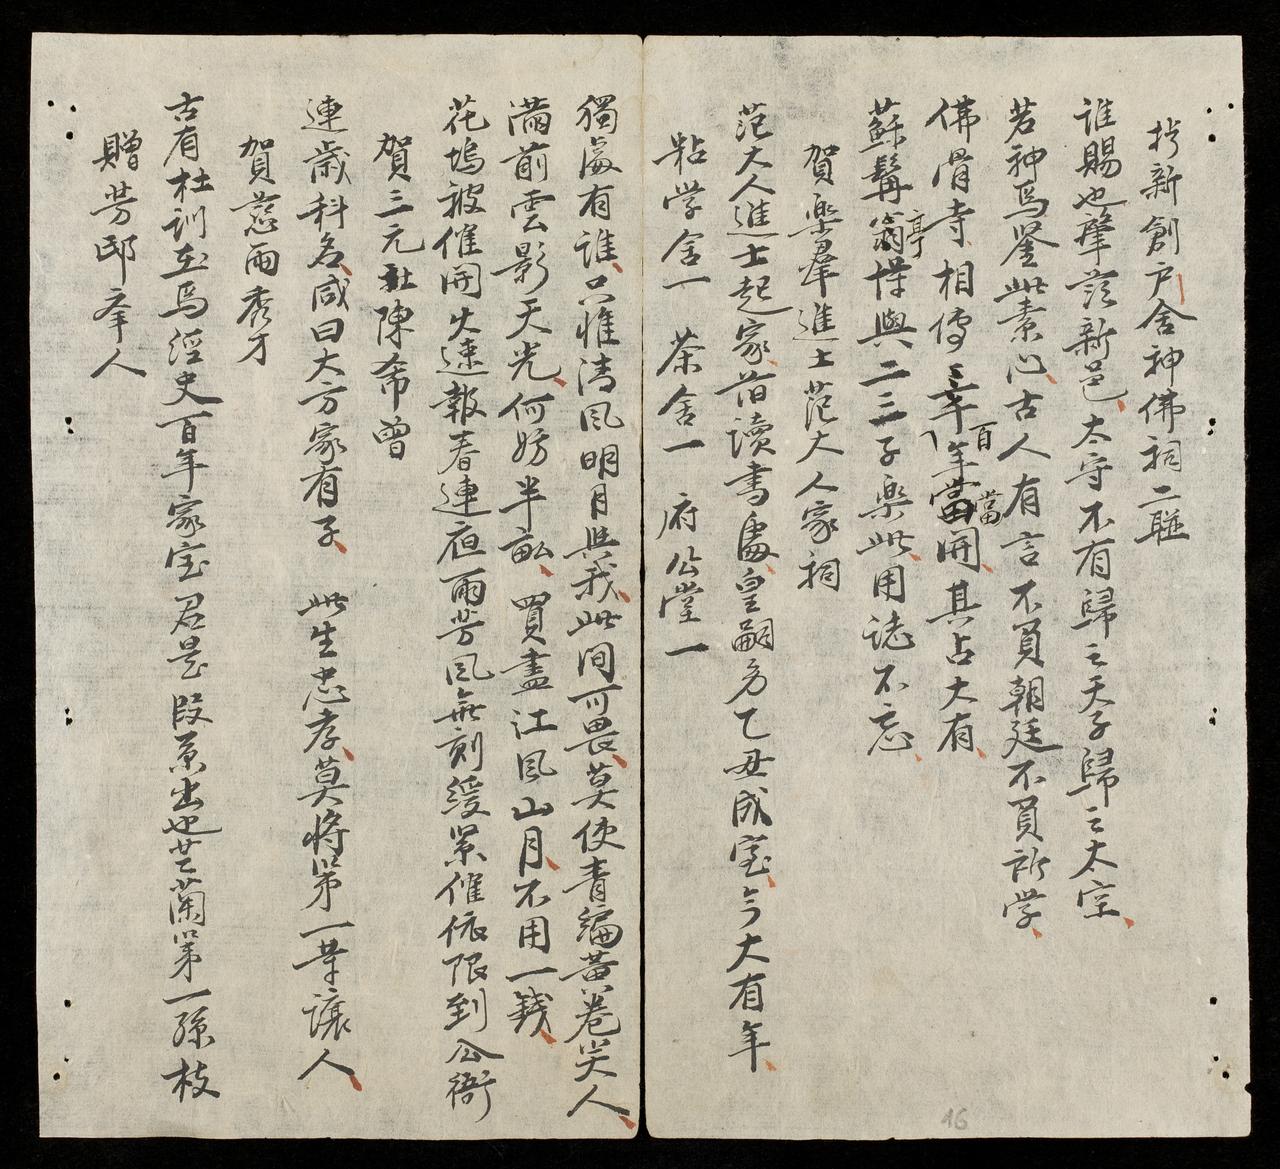 新創户舍神佛祠二聯
誰賜也肇玆新邑太守不有歸之天子歸之太空
若神焉鉴此素心古人有言不負朝廷不負所学
佛骨寺相傳年百當開其占大有
蘇髯翁亭與二三子樂此用誌不忘
賀樂羣進士范大人家祠
范大人進士起家昔讀書處皇嗣乙丑成室今大有年
粘学舍一 茶舍一 府公堂一
獨處有誰只惟清风明月與我此间可畏莫使青編黃卷笑人
滿前雲影天光何妨半畝買盡江风山月不用一錢
花塢被催開火速報春連夜雨芳风無刻緩累催依限到公衙
賀三元社陳希曾
連歲科名咸曰大方家有子 此生忠孝莫將第一等讓人
賀慈雨秀才
古有杜訓在焉經史百年家宝君是段景出也芝蘭第一孫枝
贈芳邸舉人
16